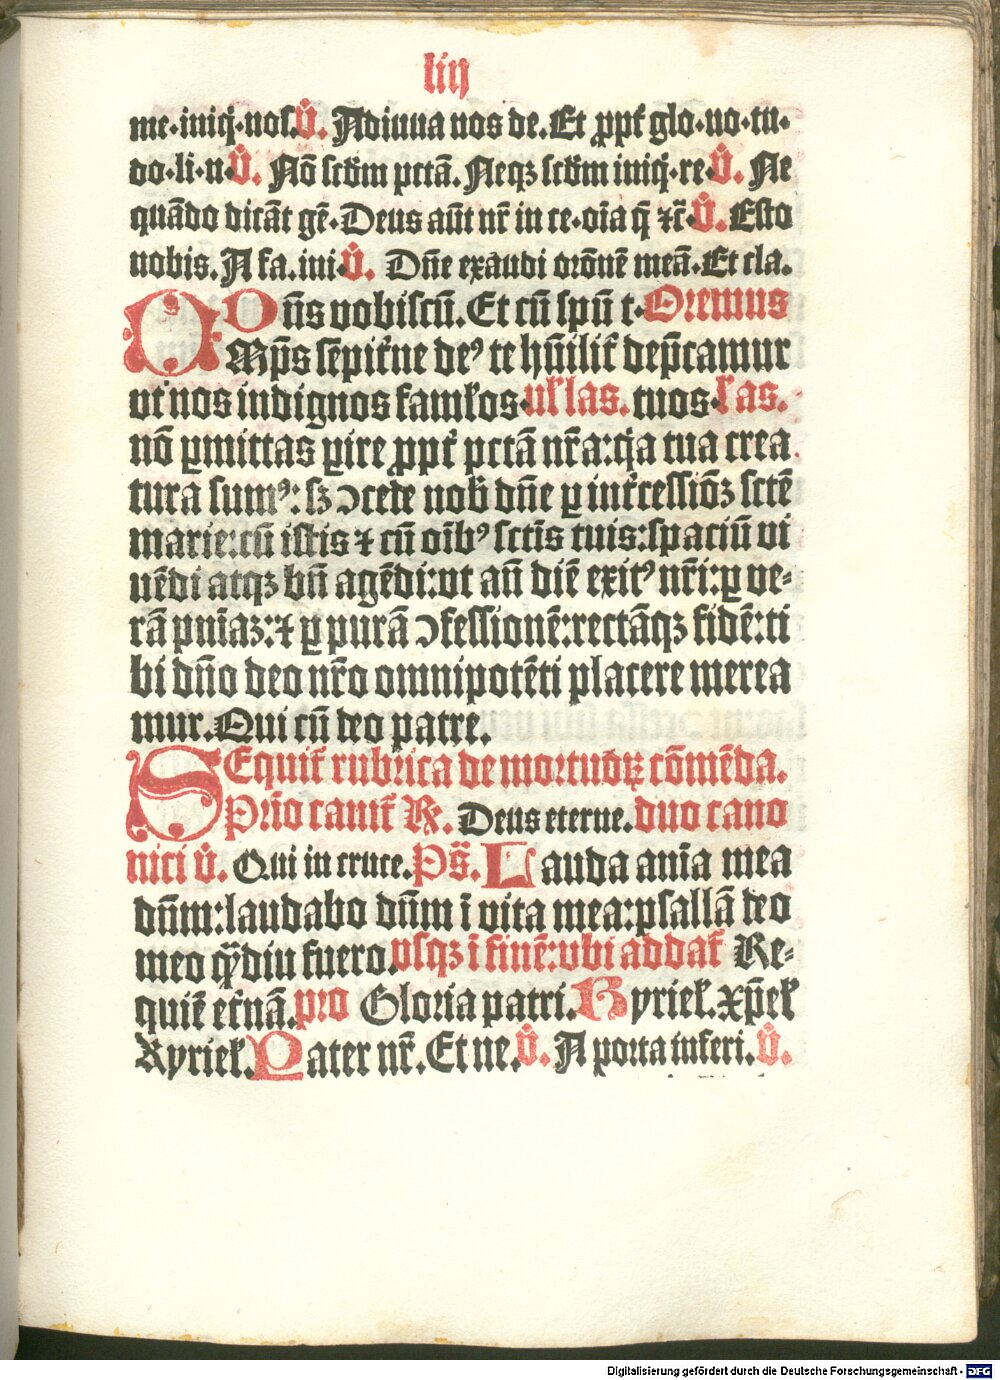 liij
me·iniq̃·nos.V̊. Adiuua nos de.Et ꝓpt̃ glo·no·tu·
do·li·n·V̊. Nõ scðm pctã. Neqꝫ scðm iniq̃·re·V̊. Ne
quãdo dicãt gẽ·Deus aũt nr̃ in ce·oĩa q̃ ⁊c̃·V̊.Esto
nobis.A fa.ini·V̊. Dñe exaudi orõnẽ meã·Et cla.
Dñs vobiscũ.Et cũ spũ t·Oremus
OMp̃s sẽpit̃ne deꝰ te hũilit̃ dep̃camur
vt nos indignos famłos·uł las.tuos·ł as.
nõ ꝑmittas ꝑire ꝓpt̃ pctã nr̃a:q̃a tua crea
tura sumꝰ:sꝫ ↄcede nob̃ dñe ꝑ int̃cessiõꝫ sctẽ
marie:cũ istis ⁊ cũ oĩbꝰ sctĩs tuis:spaciũ vi
uẽdi atqꝫ bñ agẽdi:vt añ diẽ exitꝰ nr̃i:ꝑ ve⸗
rã pnĩaꝫ:⁊ ꝑ purã ↄfessionẽ:rectãqꝫ fidẽ:ti
bi dño deo nr̃o omnipotẽti placere merea
mur.Qui cũ deo patre.
SEquit̃ rubrica de mortuoꝝ cõmẽda.
Prĩo cantt̃ ℟. Deus eterne.duo cano
nici V̊. Qui in cruce.Ps̃.Lauda anĩa mea
dñm:laudabo dñm ĩ vita mea:psallã deo
meo q̃diu fuero.vsqꝫ ĩ finẽ:vbi addat̃ Re⸗
quiẽ et̃nã.pro Gloria patri.Kyrieł.Xp̃eł
Kyrieł.Pater nr̃.Et ne.V̊. A porta inferi.V̊.
Digitalisierung gefördert durch die Deutsche Forschungsgemeinschaft - DFG